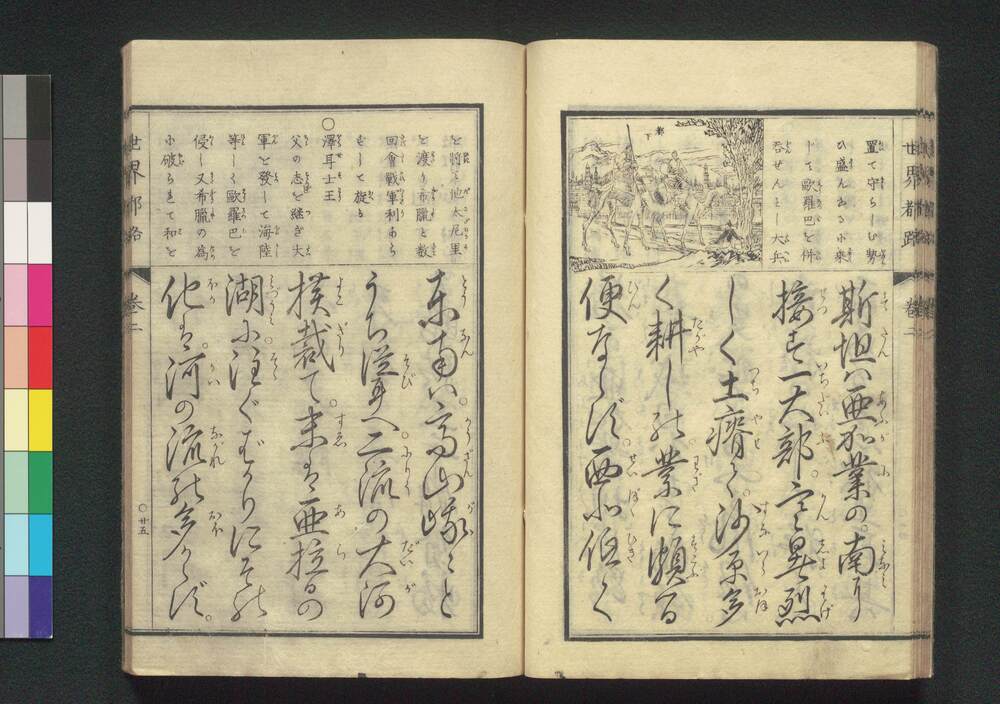 世界都路
卷二
置て守らしむ勢
ひ盛んなる小乘
して歐羅巴を併
呑せんとし大兵
都下
斯坦ハ亜加業の南り
接す一大部寒暑烈
しく土瘠て沙原多
く耕しの業に頼る
便なしだ西北低く
と將ゐ他太尼里
と渡り希臘と数
回會戰軍利あら
ずして旋る
○澤耳士王
父の志を継き大
軍と發して海陸
等しく歐羅巴を
侵し又希臘の為
小破られて和と
東南ハ高山峨々と
うち聳へ二流の大河
横截て末は亜拉るの
湖に注ぐばかりにその
他は河の流の多からず
世界都路
卷二
○廿五